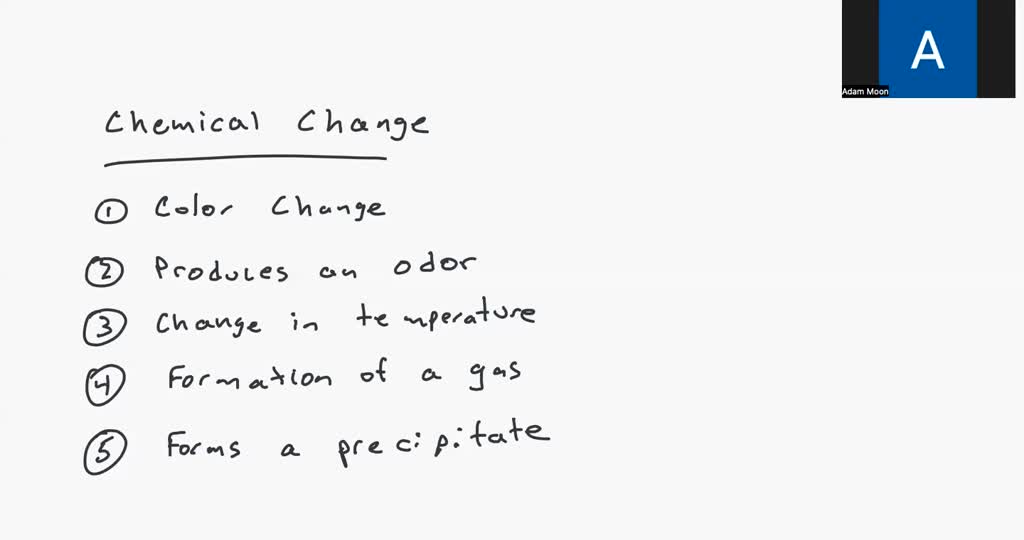 A
Adam Moon
Chemical Change
① Color Change
② Produces an odor
③ Change in temperature
④ Formation of a gas
⑤ Forms a precipitate